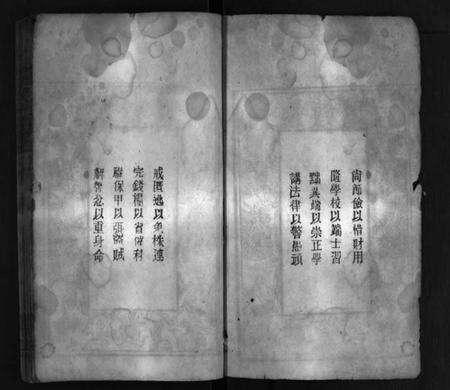 尚節儉以惜財用
隆學校以端士習
黜異端以崇正學
講法律以警愚頑
戒匿逃以免株連
完錢糧以省催科
聯保甲以弭盜賊
解讐忿以重身命